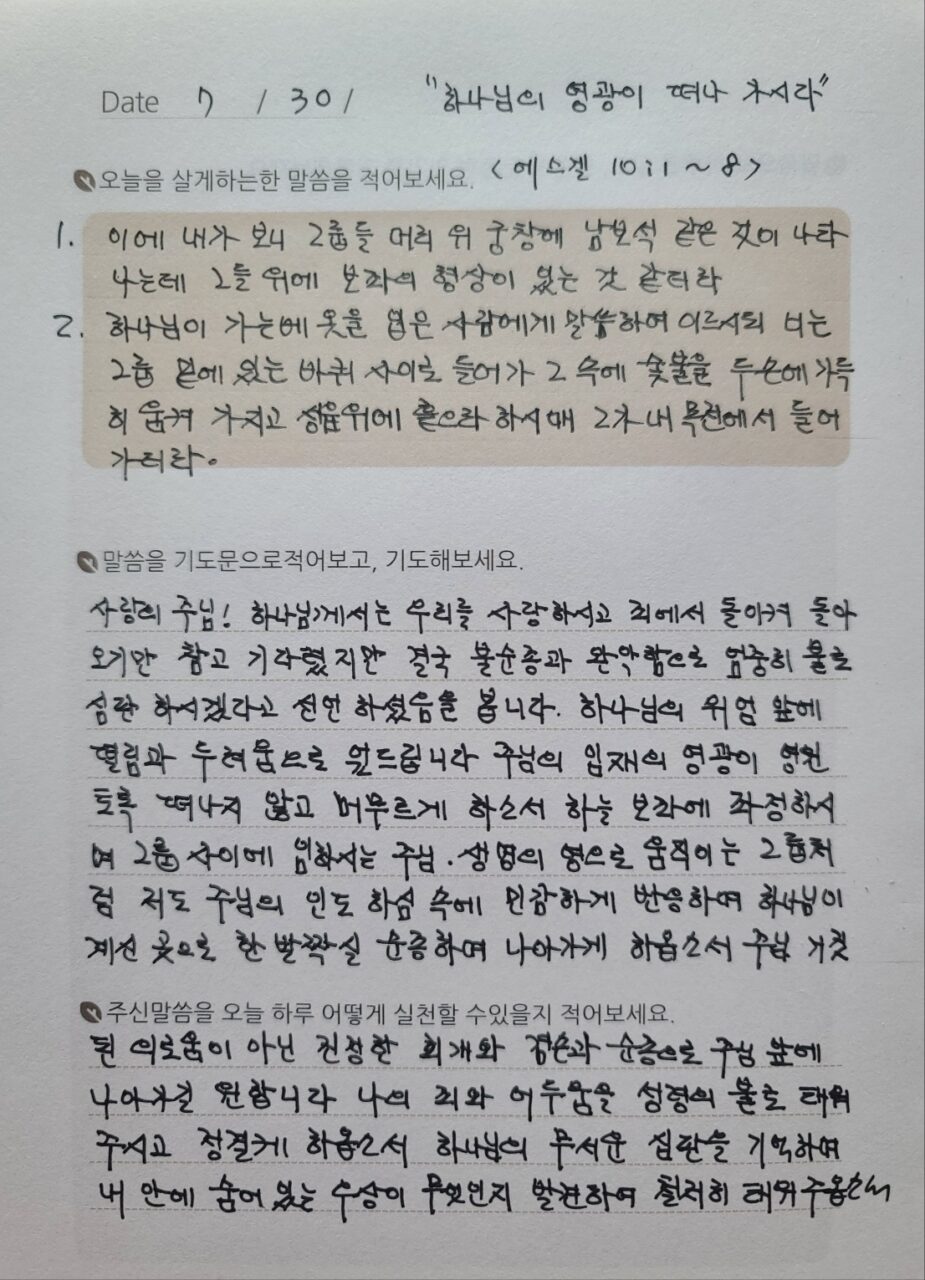 Date 7 / 30 / "하나님의 영광이 떠나 가시다"
오늘을 살게하는한 말씀을 적어보세요. <에스겔 10:1~8>
1. 이에 내가 보니 그룹들 머리 위 궁창에 남보석 같은 것이 나타
나는데 그들 위에 보좌의 형상이 있는 것 같더라
2. 하나님이 가는베 옷을 입은 사람에게 말씀하여 이르시되 너는
그룹 밑에 있는 바퀴 사이로 들어가 그 속에 숯불을 두손에 가득
히 움켜 가지고 성읍위에 흩으라 하시매 그가 내 목전에서 들어
가더라.
말씀을 기도문으로적어보고, 기도해보세요.
사랑의 주님! 하나님께서는 우리를 사랑하시고 죄에서 돌이켜 돌아
오기만 참고 기다렸지만 결국 불순종과 완악함으로 엄중히 불로
심판 하시겠다고 선언 하셨음을 봅니다. 하나님의 위엄 앞에
떨림과 두려움으로 엎드립니다 주님의 임재의 영광이 영원
토록 떠나지 않고 머무르게 하소서 하늘 보좌에 좌정하시
며 그룹 사이에 임하시는 주님. 생명의 영으로 움직이는 그룹처
럼 저도 주님의 인도 하심 속에 민감하게 반응하며 하나님이
계신 곳으로 한 발짝실 순종하며 나아가게 하옵소서 주님 거짓
주신말씀을 오늘 하루 어떻게 실천할 수있을지 적어보세요.
된 의로움이 아닌 진정한 회개와 겸손과 순종으로 주님 앞에
나아가길 원합니다 나의 죄와 어두움을 성령의 불로 태워
주시고 정결케 하옵소서 하나님의 무서운 심판을 기억하며
내 안에 숨어 있는 우상이 무엇인지 발견하여 철저히 태워주옵소서